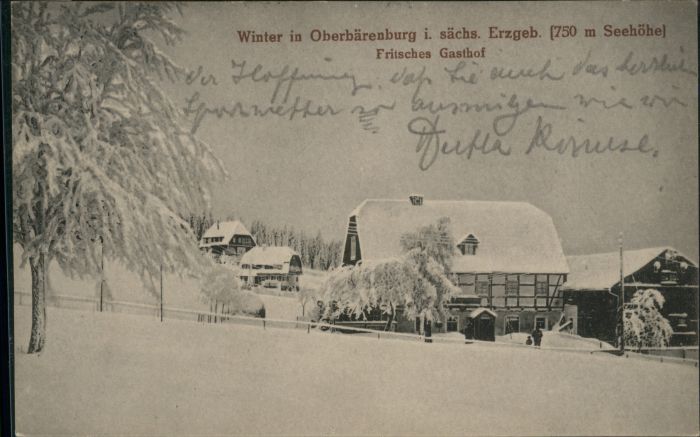 Winter in Oberbärenburg i. sächs. Erzgeb. [750 m Seehöhe]
Fritsches Gasthof
der Hoffnung, daß Sie auch das herrliche
Sportwetter so ausnutzen wie wir